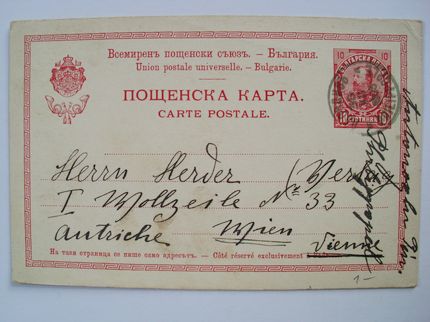 Всемиренъ пощенски съюзъ. – България.
Union postale universelle. – Bulgarie.
ПОЩЕНСКА КАРТА.
CARTE POSTALE.
10 10
БЪЛГАРСКА
10 СТОТИНКИ 10
Herrn Herder (Verlag
I Wollzeile Nr 33
Antriche Wien
Vienne
На тази страница се пише само адресътъ. – Côté réservé exclusivement
1-